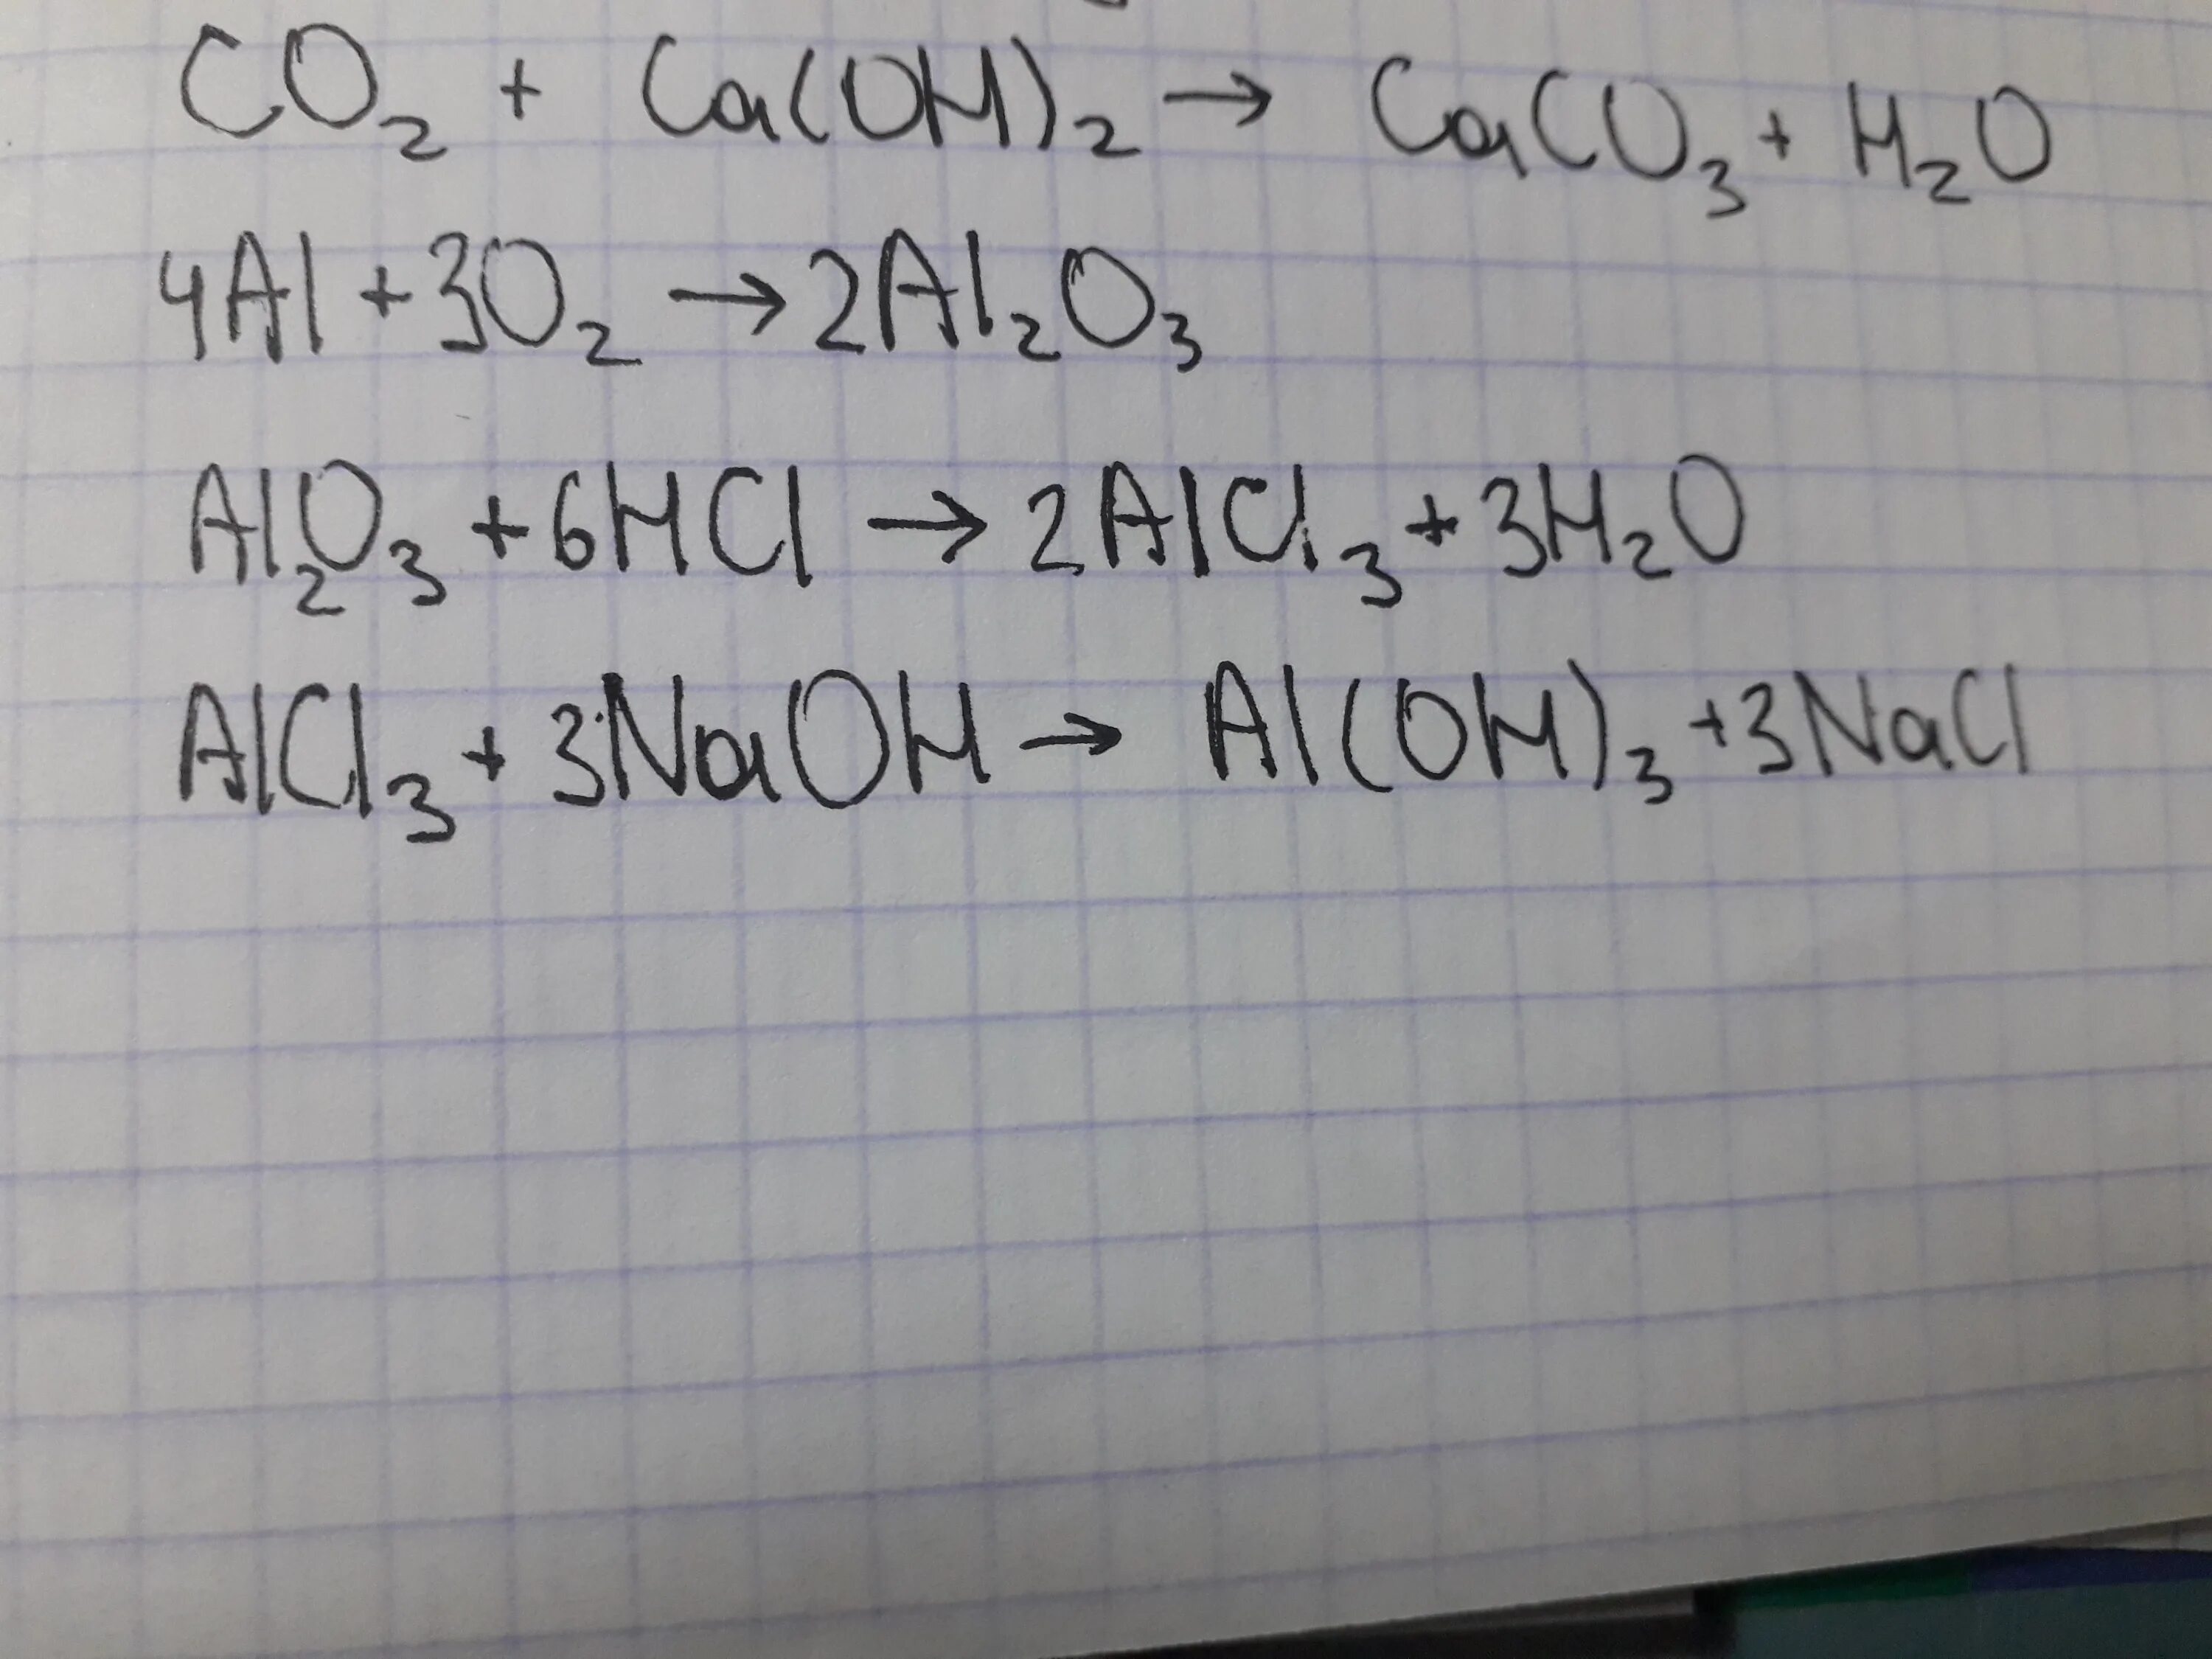 CO₂ + Ca(OH)₂ → CaCO₃ + H₂O
4Al + 3O₂ → 2Al₂O₃
Al₂O₃ + 6HCl → 2AlCl₃ + 3H₂O
AlCl₃ + 3NaOH → Al(OH)₃ + 3NaCl